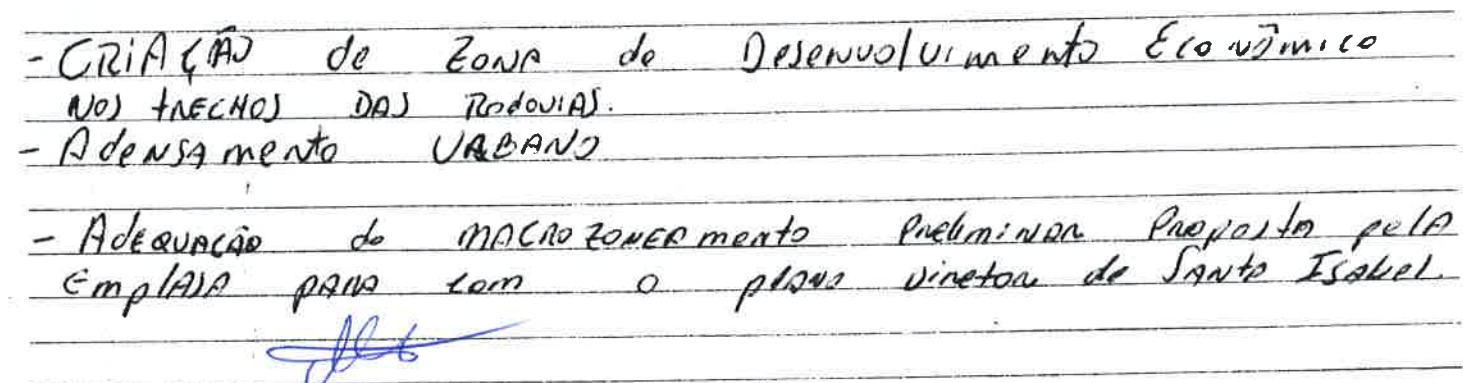 - CRIAÇÃO de ZONA de Desenvolvimento Econômico
NOS tRECHOS DAS Rodovias.
- Adensamento URBANO
- Adequação do MACROZONEAmento Preliminar Proposta pela
Emplasa para com o plano diretor de Santa Isabel.